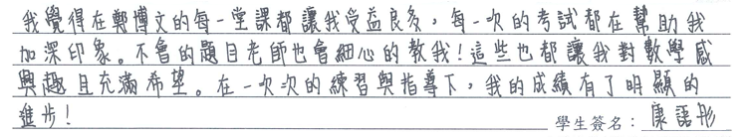 我覺得在鄭博文的每一堂課都讓我受益良多，每一次的考試都在幫助我
加深印象。不會的題目老師也會細心的教我！這些也都讓我對數學感
興趣且充滿希望。在一次次的練習與指導下，我的成績有了明顯的
進步！ 學生簽名：康語彤